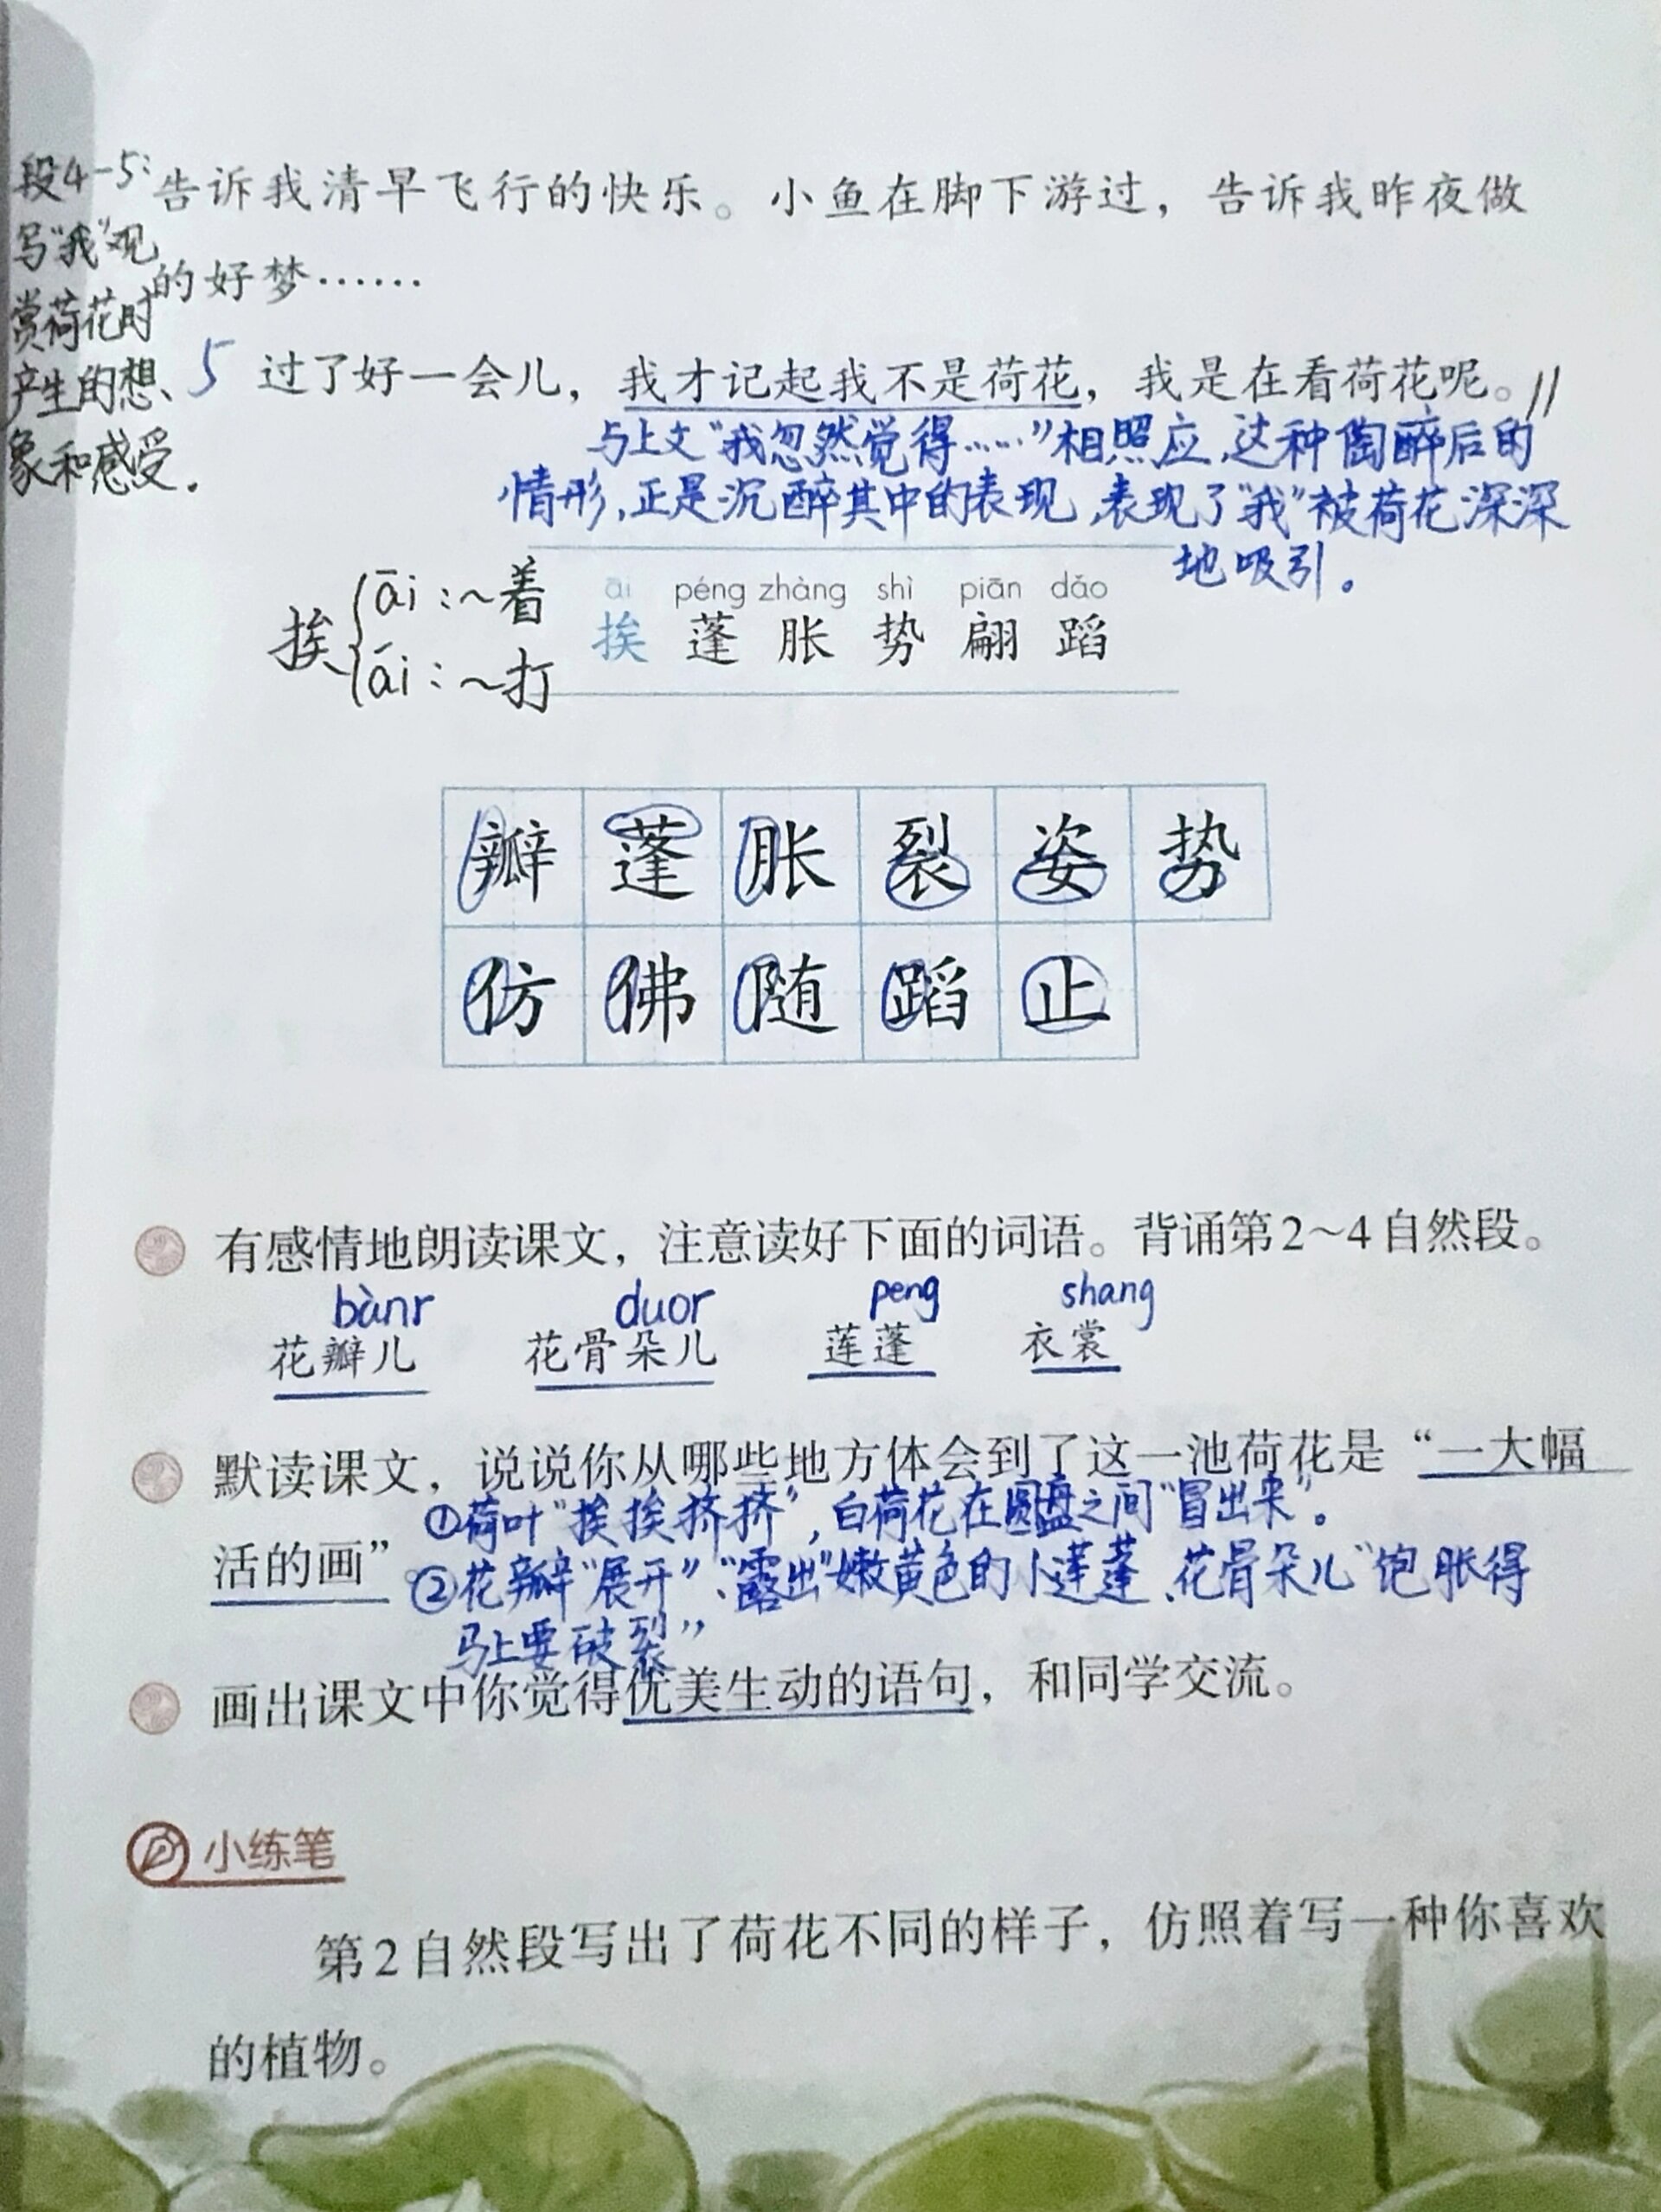 段4-5:
写“我”观
赏荷花时
产生的想、
象和感受.
告诉我清早飞行的快乐。小鱼在脚下游过，告诉我昨夜做
的好梦……
5 过了好一会儿，我才记起我不是荷花，我是在看荷花呢。//
与上文“我忽然觉得……”相照应,这种陶醉后的
情形,正是沉醉其中的表现,表现了“我”被荷花深深
地吸引。
挨
āi:~着
āi:~打
āi péng zhàng shì piān dǎo
挨 蓬 胀 势 翩 蹈
瓣 蓬 胀 裂 姿 势
仿 佛 随 蹈 止
有感情地朗读课文，注意读好下面的词语。背诵第2~4自然段。
bànr duor peng shang
花瓣儿 花骨朵儿 莲蓬 衣裳
默读课文，说说你从哪些地方体会到了这一池荷花是“一大幅
①荷叶“挨挨挤挤”,白荷花在圆盘之间“冒出来”。
活的画”。
②花瓣“展开”、“露出”嫩黄色的小莲蓬、花骨朵儿“饱胀得
马上要破裂”
画出课文中你觉得优美生动的语句，和同学交流。
小练笔
第2自然段写出了荷花不同的样子，仿照着写一种你喜欢
的植物。